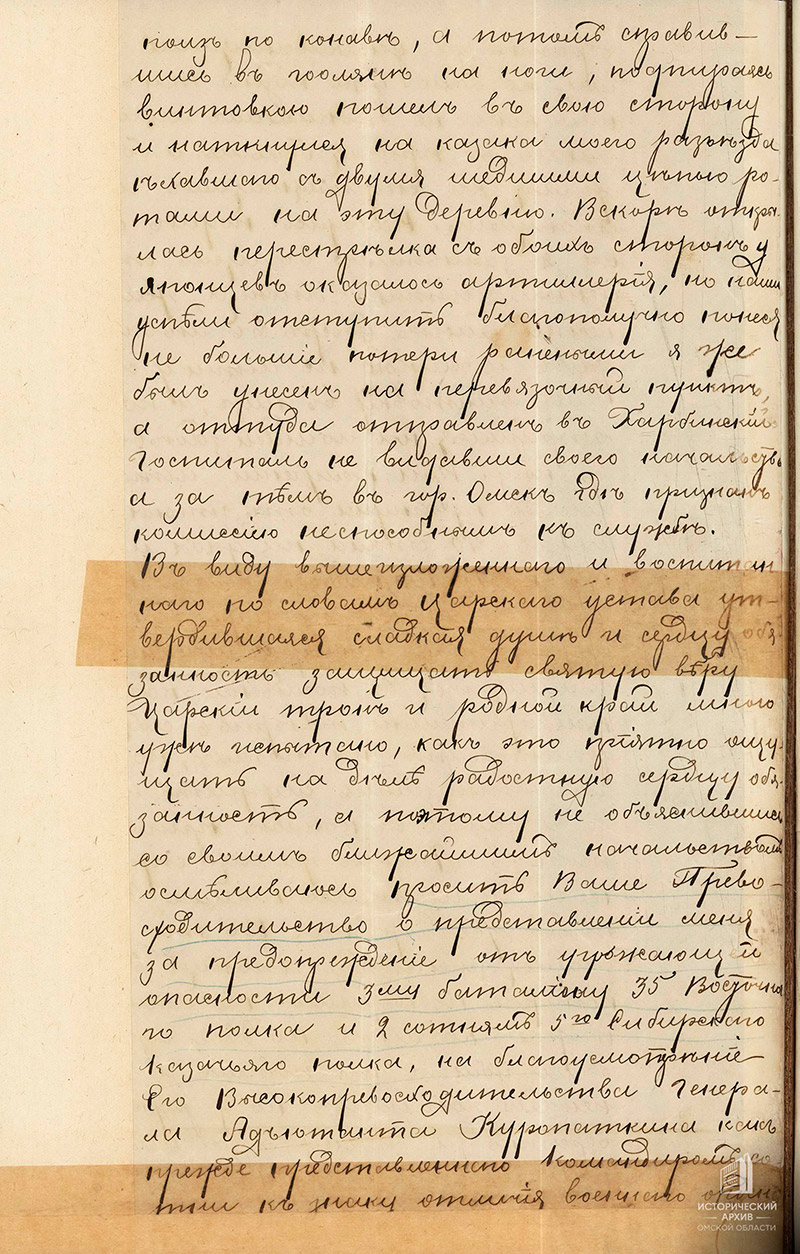 ползъ по конавѣ, а потомъ справив-
шись въ гоолянѣ на ноги, подпираясь
винтовкою пошелъ въ свою сторону
и наткнулся на казака моего разъѣзда
ѣхавшаго съ двумя шедшими цѣпью ро-
тами на эту деревню. Вскорѣ откры-
лась перестрѣлка съ обоихъ сторонъ у
японцевъ оказалось артиллерія, но наши
успѣли отступить благополучно понеся
не большіе потери ранеными я же
былъ унесенъ на перевязочный пунктъ,
а оттуда отправленъ въ Харбинскій
Госпиталь не видавши своего начальств
а за тѣмъ въ гор. Омскъ гдѣ признанъ
коммиссіею неспособнымъ къ службѣ.
Въ виду вышеизложеннаго и воспитан
наго по словамъ Царскаго устава ут-
вердившаяся сладкая душѣ и сердцу обя-
занность защищать святую вѣру
Царскій тронъ и родной край много
ужъ испытано, какъ это пріятно ощу-
щать на дѣлѣ радостную сердцу обя-
занность, а потому не объяснившись
со своимъ ближайшимъ начальствомъ
осмѣливаюсь просить Ваше Прево-
сходительство о представленіи меня
за предопреждение отъ угрожающей
опасности 3му баталіону 35 Восточна
го полка и 2 сотнямъ 5го Сибирскаго
казачьяго полка, на благоусмотрѣніе
Его Высокопревосходительства Генера-
ла Адъютанта Куропаткина какъ
прежде представленнаго командиромъ со
тни къ знаку отличія военнаго
ИСТОРИЧЕСКИЙ
АРХИВ
ОМСКОЙ ОБЛАСТИ